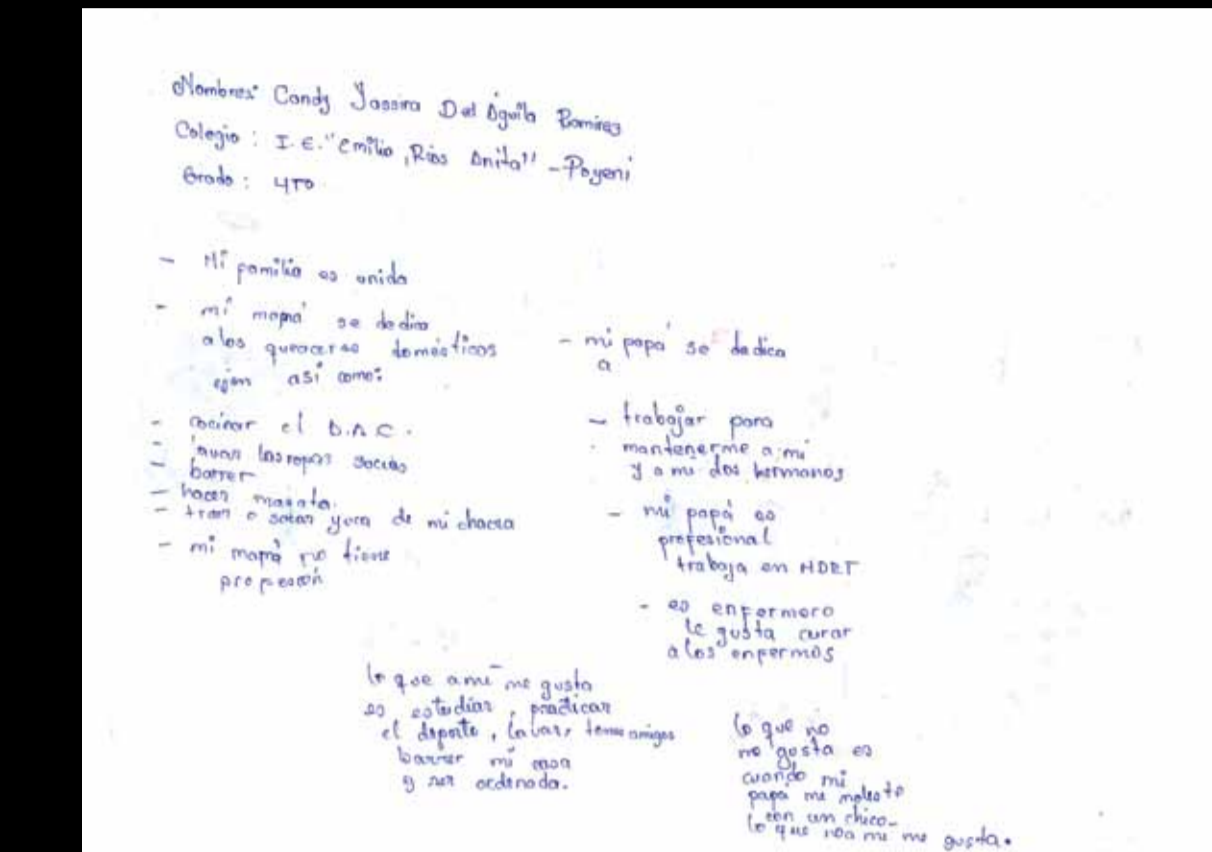 Nombres: Candy Jassira Del Águila Ramirez
Colegio: I.E. "Emilio, Rios Anita" - Poyeni
Grado: 4TO
- Mi pamilia es unida
- mi mapá se dedica
a los queaceres domésticos
ejem así como:
- cocinar el D.A.C.
- lavan las ropas socias
- barrer
- hacer masato.
- traer o sacar yuca de mi chacra
- mi mapá no tiene
propesión
- mi papá se dedica
a
- trabajar para
mantenerme a mi
y a mi dos hermanos
- mi papá es
profesional
trabaja en MDRT
- es enfermero
le gusta curar
a los enpermos
lo que a mi me gusta
es estudiar, practicar
el deporte, labar, tener amigos
barrer mi casa
y ser ordenada.
lo que no
me gusta es
cuando mi
papá me molesta
con un chico.
lo que no a mi me gusta.